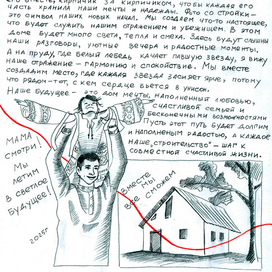 вместе, кирпичик за кирпичиком, чтобы каждая его
часть хранила наши мечты и надежды. Фото со стройки -
это символ наших новых начал. Мы создаём что-то настоящее,
что будет служить нашим отражением и убежищем. В этом
доме будет много света, тепла и смеха. Здесь будут слышны
наши разговоры, уютные вечера и радостные моменты.
А на пруду, где белый лебедь качает павшую звезду, я вижу
наше отражение - гармонию и спокойствие. Мы вместе
создадим место, где каждая звезда засияет ярче, потому
что рядом - тот, с кем сердце бьётся в унисон.
Наше будущее - это дом мечты, наполненный любовью,
счастливой семьей и
бесконечными возможностями
Пусть этот путь будет долгим
и наполненным радостью, а каждое
наше "строительство" - шаг к
совместной счастливой жизни.
МАМА
СМОТРИ!
МЫ
ЛЕТИМ
В СВЕТЛОЕ
БУДУЩЕЕ!
2025г
ВМЕСТЕ
МЫ
ВСЁ СМОЖЕМ